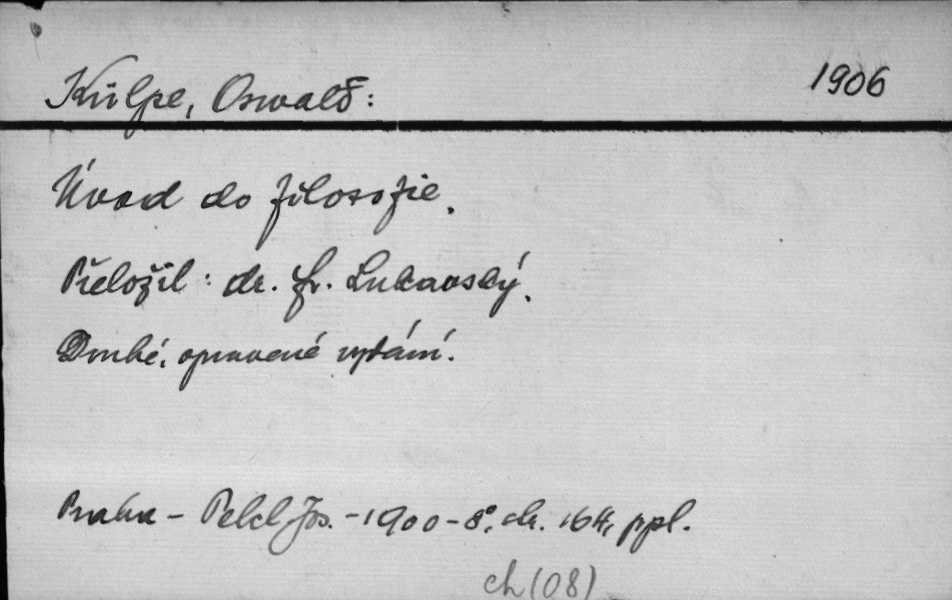 Külpe, Oswald:
1906
Úvod do filosofie.
Přeložil: dr. Fr. Lukavský.
Druhé, opravené vydání.
Praha – Pelcl Jos. – 1900 – 8°, ppl.
ch (08)